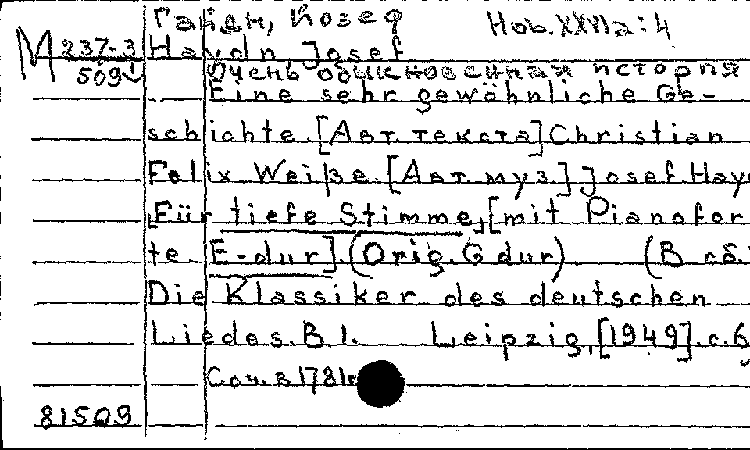 Гайдн, Йозеф Hob.XXVIa:4
М 237-3 Haydn, Josef
509 Очень обыкновенная история
Eine sehr gewöhnliche Ge-
schichte.[Авт.текста]Christian
Felix Weiße.[Авт.муз.]Josef Hay
Für tiefe Stimme,[mit Pianofor
te. E-dur].(Orig.G dur) (В сб.
Die Klassiker des deutschen
Liedes.B I. Leipzig,[1949].с.6
Соч.в 1781г
81509